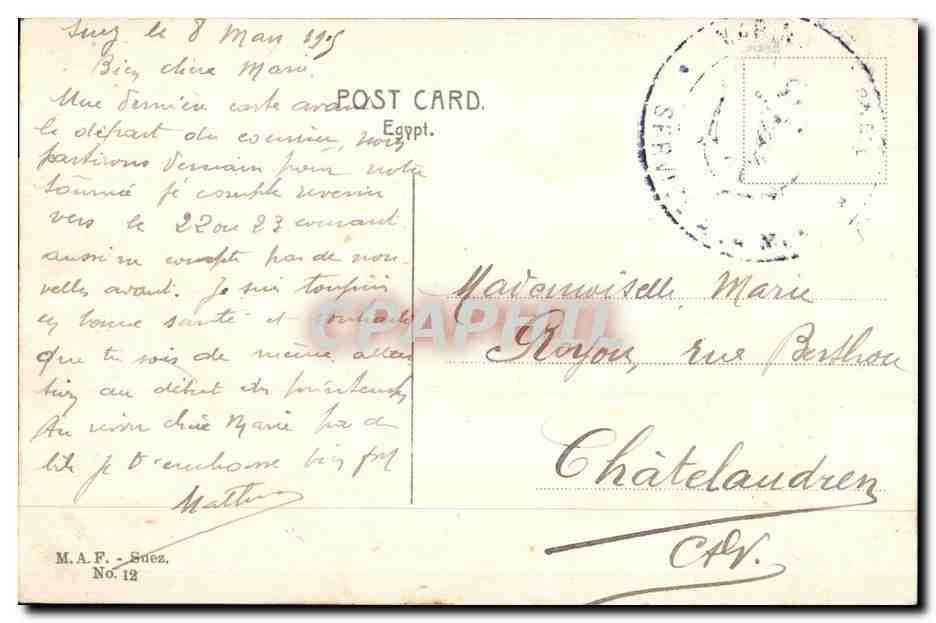 Suez le 8 Mars 1915
Bien chère Marie.
Une dernière carte avant
le départ du courrier, nous
partirons demain pour notre
tournée je compte revenir
vers le 22 ou 23 courant
aussi ne compte pas de nou-
velles avant. Je suis toujours
en bonne santé et souhaite
que tu sois de même,
bien au début du printemps
Au revoir chère Marie
je t'embrasse bien fort
Mathu
POST CARD.
Egypt.
Mademoiselle Marie
Royou, rue Berthou
Châtelaudren
CDN.
M. A. F. - Suez.
No. 12
CPAPHIL